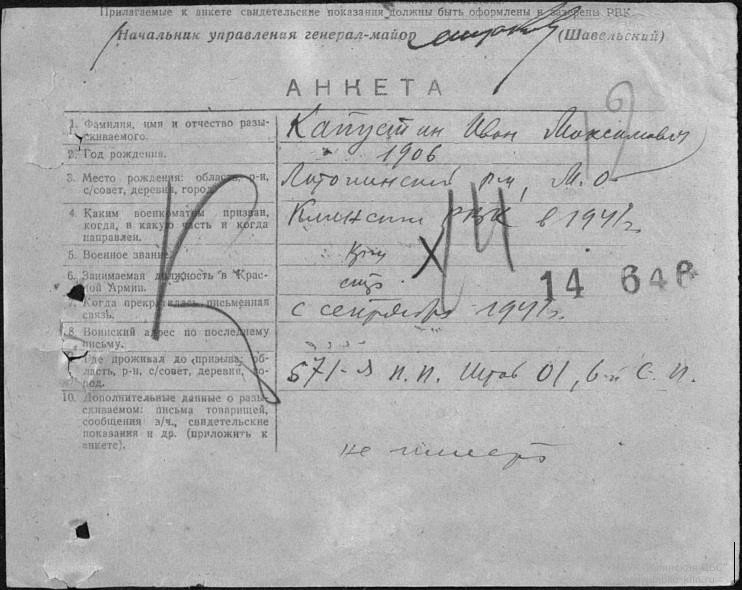 Прилагаемые к анкете свидетельские показания должны быть оформлены и заверены РВК.
Начальник управления генерал-майор (Шавельский)
АНКЕТА
1. Фамилия, имя и отчество разы-
скиваемого.
Капустин Иван Максимович
2. Год рождения.
1906
3. Место рождения: область, р-н,
с/совет, деревня, город.
Лотошинский р-н, М.О.
4. Каким военкоматом призван,
когда, в какую часть и когда
направлен.
Клинский РВК в 1941 г.
5. Военное звание.
Кр-ц
6. Занимаемая должность в Крас-
ной Армии.
стр.
14 646
7. Когда прекратилась письменная
связь.
с сентября 1941 г.
8. Воинский адрес по последнему
письму.
9. Где проживал до призыва, об-
ласть, р-н, с/совет, деревня, го-
род.
571-я п.п. Штаб 01, 6-й С.П.
10. Дополнительные данные о разы-
скиваемом: письма товарищей,
сообщения в/ч., свидетельские
показания и др. (приложить к
анкете).
не